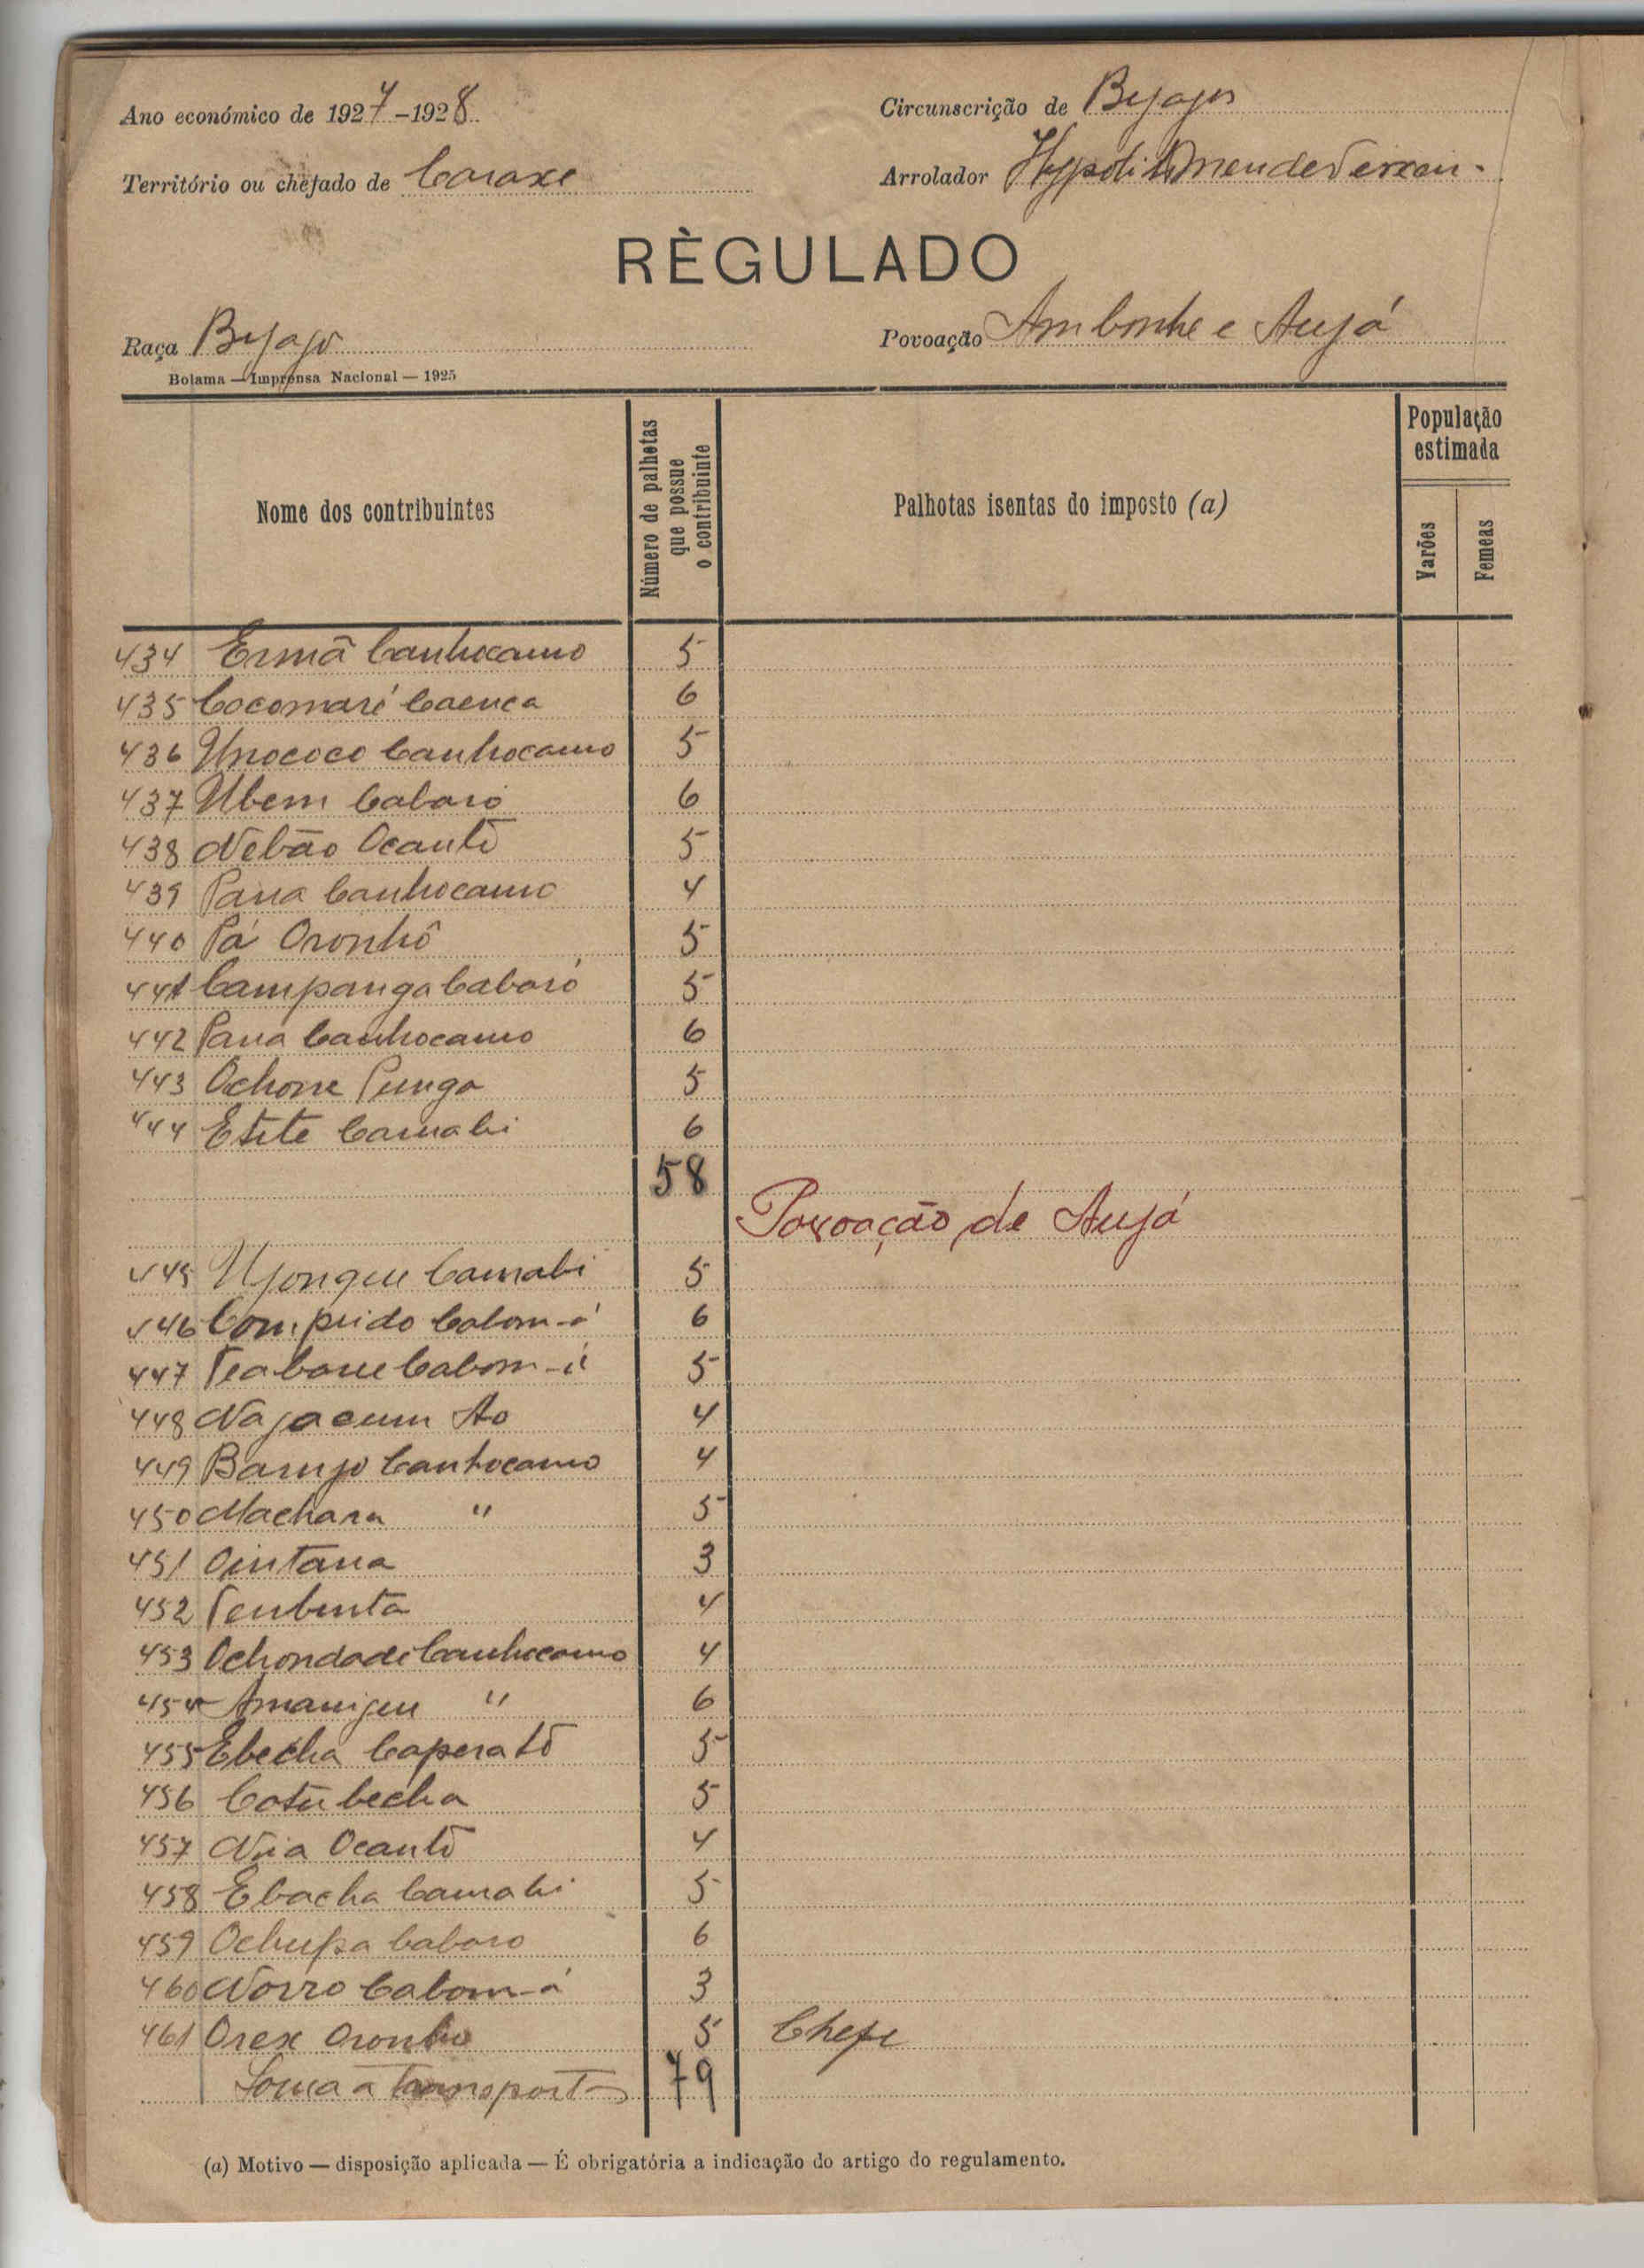 Ano económico de 1927-1928
Circunscrição de Byagos
Território ou chefado de Caraxe
Arrolador Hypolit
RÈGULADO
Raça Byago
Povoação Ambonhe e Anjá
Bolama — Imprensa Nacional — 1925
Nome dos contribuintes
Número de palhotas que possue o contribuinte
Palhotas isentas do imposto (a)
População estimada
Varões
Femeas
434 Ermã Canhocamo 5
435 Cocomaré Caenca 6
436 Unococo Canhocamo 5
437 Ubem Cabaró 6
438 Nebão Ocantó 5
439 Pana Canhocamo 4
440 Pá Oronhô 5
441 Campanga Cabaró 5
442 Pana Canhocamo 6
443 Ochone Punga 5
444 Etite Camabi 6
58
Povoação de Anjá
445 Ujongue Camabi 5
446 Comprido Cabom-á 6
447 Cabom-á 5
448 Najacum Ao 4
449 Banujo Canhocamo 4
450 Machana " 5
451 Ointana 3
452 4
453 Ochondade Canhocamo 4
454 Amanigue " 6
455 Ebecha Caperató 5
456 Cotubecha 5
457 Nia Ocantó 4
458 Ebacha Camabi 5
459 Ochupa Cabaro 6
460 Norro Cabom-á 3
461 Orex Oronho 5 Chefe
Soma a transportar 79
(a) Motivo — disposição aplicada — É obrigatória a indicação do artigo do regulamento.